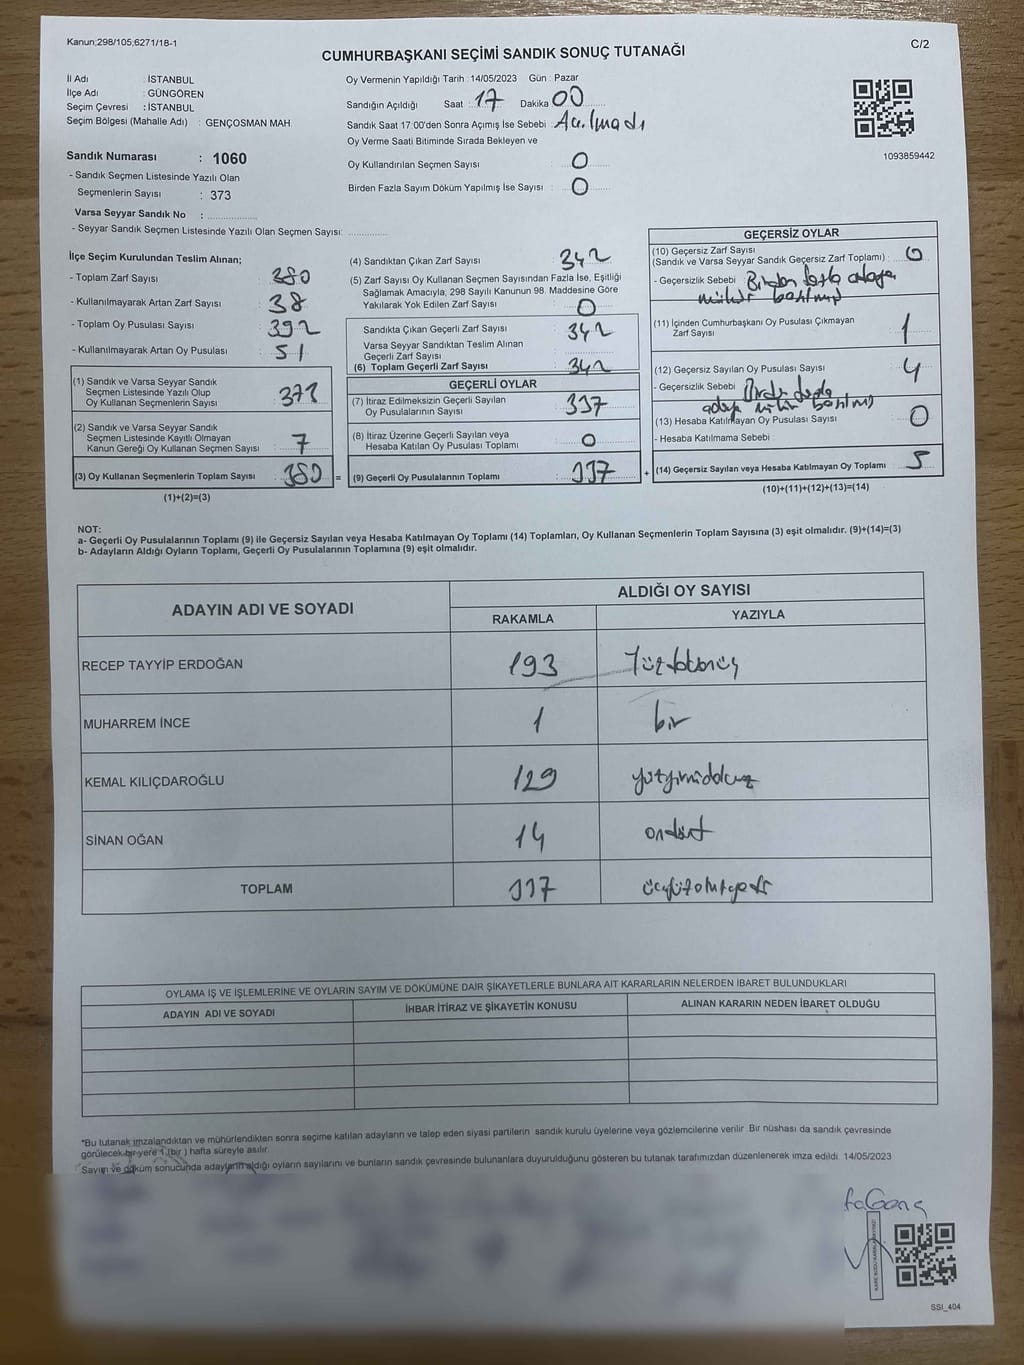 Kanun;298/105;6271/18-1
C/2
CUMHURBAŞKANI SEÇİMİ SANDIK SONUÇ TUTANAĞI
İl Adı : İSTANBUL
İlçe Adı : GÜNGÖREN
Seçim Çevresi : İSTANBUL
Seçim Bölgesi (Mahalle Adı) : GENÇOSMAN MAH.
Sandık Numarası : 1060
- Sandık Seçmen Listesinde Yazılı Olan
Seçmenlerin Sayısı : 373
Varsa Seyyar Sandık No :
- Seyyar Sandık Seçmen Listesinde Yazılı Olan Seçmen Sayısı:
Oy Vermenin Yapıldığı Tarih : 14/05/2023 Gün : Pazar
Sandığın Açıldığı Saat : 17 Dakika 00
Sandık Saat 17:00'den Sonra Açımış İse Sebebi : Açılmadı
Oy Verme Saati Bitiminde Sırada Bekleyen ve
Oy Kullandırılan Seçmen Sayısı : 0
Birden Fazla Sayım Döküm Yapılmış İse Sayısı : 0
1093859442
İlçe Seçim Kurulundan Teslim Alınan;
- Toplam Zarf Sayısı : 380
- Kullanılmayarak Artan Zarf Sayısı : 38
- Toplam Oy Pusulası Sayısı : 392
- Kullanılmayarak Artan Oy Pusulası : 51
(1) Sandık ve Varsa Seyyar Sandık
Seçmen Listesinde Yazılı Olup
Oy Kullanan Seçmenlerin Sayısı : 373
(2) Sandık ve Varsa Seyyar Sandık
Seçmen Listesinde Kayıtlı Olmayan
Kanun Gereği Oy Kullanan Seçmen Sayısı : 7
(3) Oy Kullanan Seçmenlerin Toplam Sayısı : 380 =
(1)+(2)=(3)
(4) Sandıktan Çıkan Zarf Sayısı : 342
(5) Zarf Sayısı Oy Kullanan Seçmen Sayısından Fazla İse, Eşitliği
Sağlamak Amacıyla, 298 Sayılı Kanunun 98. Maddesine Göre
Yakılarak Yok Edilen Zarf Sayısı : 0
Sandıkta Çıkan Geçerli Zarf Sayısı : 342
Varsa Seyyar Sandıktan Teslim Alınan
Geçerli Zarf Sayısı :
(6) Toplam Geçerli Zarf Sayısı : 342
GEÇERLİ OYLAR
(7) İtiraz Edilmeksizin Geçerli Sayılan
Oy Pusulalarının Sayısı : 337
(8) İtiraz Üzerine Geçerli Sayılan veya
Hesaba Katılan Oy Pusulası Toplamı : 0
(9) Geçerli Oy Pusulalarının Toplamı : 337 +
GEÇERSİZ OYLAR
(10) Geçersiz Zarf Sayısı
(Sandık ve Varsa Seyyar Sandık Geçersiz Zarf Toplamı) : 0
- Geçersizlik Sebebi : Birden fazla adaya
mühür basılmış
(11) İçinden Cumhurbaşkanı Oy Pusulası Çıkmayan
Zarf Sayısı : 1
(12) Geçersiz Sayılan Oy Pusulası Sayısı : 4
- Geçersizlik Sebebi : Birden fazla
adaya mühür basılmış
(13) Hesaba Katılmayan Oy Pusulası Sayısı : 0
- Hesaba Katılmama Sebebi :
(14) Geçersiz Sayılan veya Hesaba Katılmayan Oy Toplamı : 5
(10)+(11)+(12)+(13)=(14)
NOT:
a- Geçerli Oy Pusulalarının Toplamı (9) ile Geçersiz Sayılan veya Hesaba Katılmayan Oy Toplamı (14) Toplamları, Oy Kullanan Seçmenlerin Toplam Sayısına (3) eşit olmalıdır. (9)+(14)=(3)
b- Adayların Aldığı Oyların Toplamı, Geçerli Oy Pusulalarının Toplamına (9) eşit olmalıdır.
ADAYIN ADI VE SOYADI
ALDIĞI OY SAYISI
RAKAMLA YAZIYLA
RECEP TAYYİP ERDOĞAN 193 Yüzdoksanüç
MUHARREM İNCE 1 bir
KEMAL KILIÇDAROĞLU 129 yüzyirmidokuz
SİNAN OĞAN 14 ondört
TOPLAM 337 üçyüzotuzyedi
OYLAMA İŞ VE İŞLEMLERİNE VE OYLARIN SAYIM VE DÖKÜMÜNE DAİR ŞİKAYETLERLE BUNLARA AİT KARARLARIN NELERDEN İBARET BULUNDUKLARI
ADAYIN ADI VE SOYADI İHBAR İTİRAZ VE ŞİKAYETİN KONUSU ALINAN KARARIN NEDEN İBARET OLDUĞU
*Bu tutanak imzalandıktan ve mühürlendikten sonra seçime katılan adayların ve talep eden siyasi partilerin sandık kurulu üyelerine veya gözlemcilerine verilir .Bir nüshası da sandık çevresinde
görülecek bir yere 1 (bir ) hafta süreyle asılır.
Sayım ve döküm sonucunda adayların aldığı oyların sayılarını ve bunların sandık çevresinde bulunanlara duyurulduğunu gösteren bu tutanak tarafımızdan düzenlenerek imza edildi. 14/05/2023
SSI_404